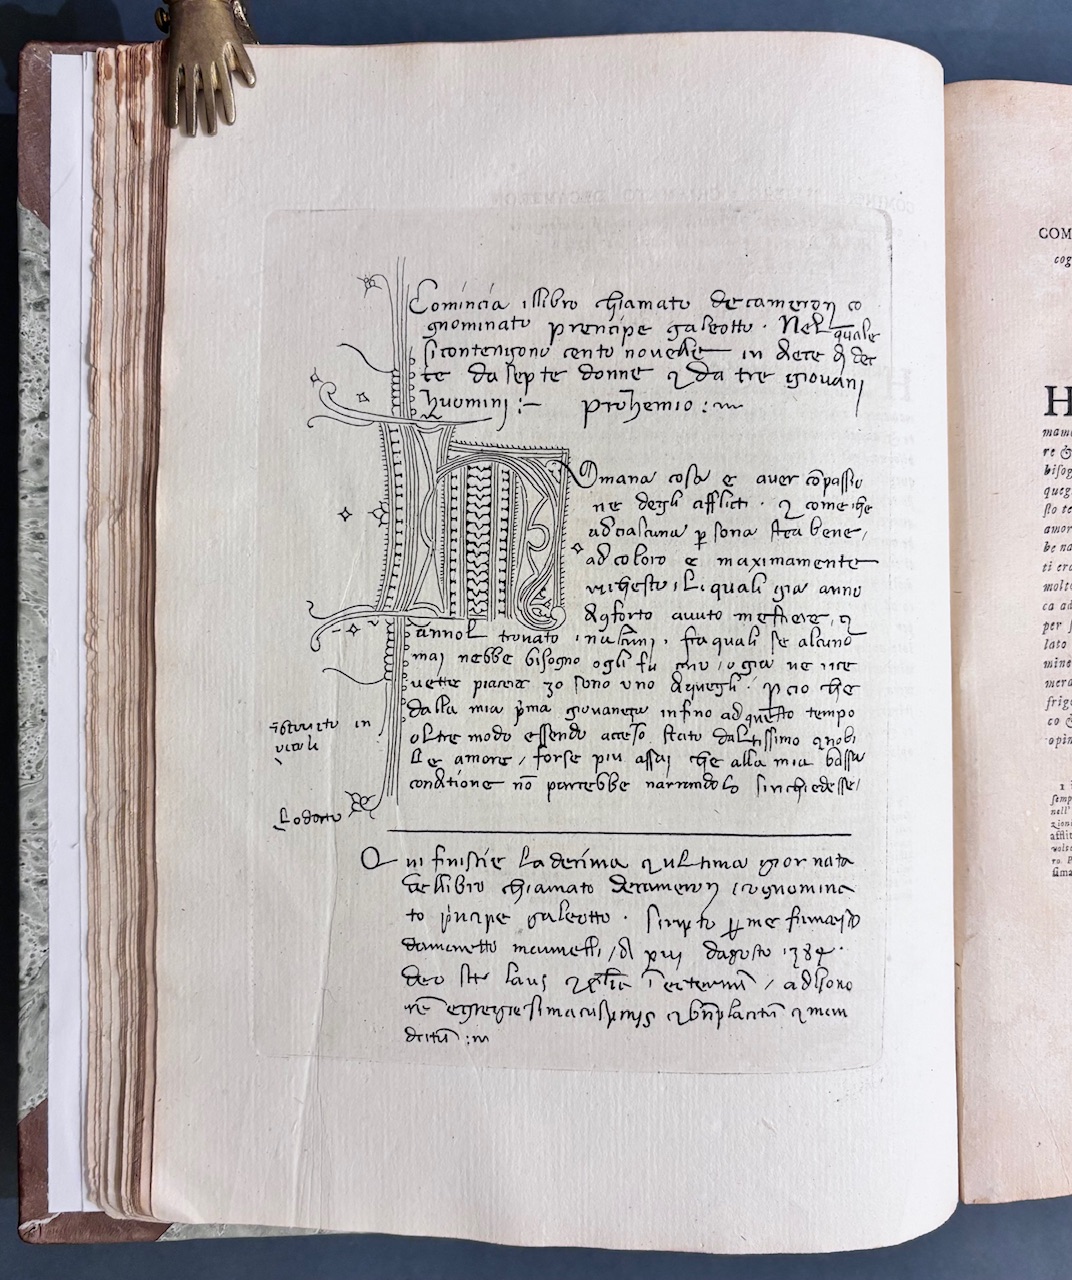 Comincia illibro chiamato decameron co
gnominato prencipe galeotto. Nel quale
si contengono cento novelle in diece dì det
te da septe donne & da tre giovani
huomini :~ prohemio :~
Omana cosa e aver cōpassio
ne degli afflicti. & come che
ad ciascuna p sona stea bene,
ad coloro e maximamente
richesto, li quali gia anno
di conforto avuto mestiere, &
annol trovato in alcuni, fra quali se alcuno
mai nebbe bisogno o gli fu caro, o gia ne rice
vette piacere io sono uno di quegli. p cio che
dalla mia p̄ma giovaneza infino ad questo tempo
oltre modo essendo acceso stato daltissimo & nobi
le amore, forse piu assai che alla mia bassa
conditione nō parrebbe narrandolo sinchiedesse,
in
Lodato
Qui finiscie la decima & ultima giornata
del libro chiamato decameron, cognomina
to principe galeotto. Scripto p me francisco
damaretto mannelli, dì xiij dagosto 1384.
deo sit laus & gloria in eternum, ad hono
rē egregie
ditū :~
COM
cog
H
mama
re &
bisog
queg
sto te
amor
be na
ti era
molto
ca ad
per s
lato
mine
mera
frig
co &
opin
1
semp
nell'
zion
afflit
volt
ro. P
sima